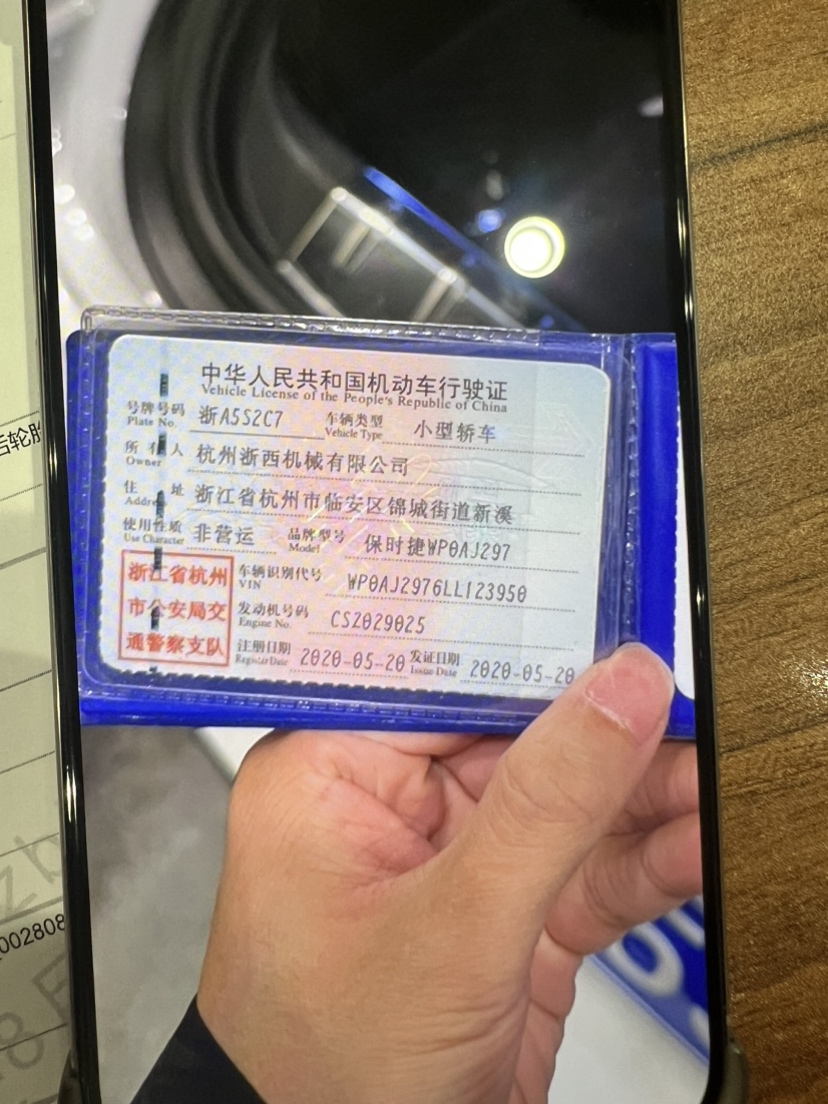 中华人民共和国机动车行驶证
Vehicle License of the People's Republic of China
号牌号码 浙A5S2C7 车辆类型 小型轿车
Plate No. Vehicle Type
所有人 杭州浙西机械有限公司
Owner
住址 浙江省杭州市临安区锦城街道新溪
Address
使用性质 非营运 品牌型号 保时捷WP0AJ297
Use Character Model
浙江省杭州
市公安局交
通警察支队
车辆识别代号 WP0AJ2976LL123950
VIN
发动机号码 CS2029025
Engine No.
注册日期 2020-05-20 发证日期 2020-05-20
Register Date Issue Date
后轮胎
002808